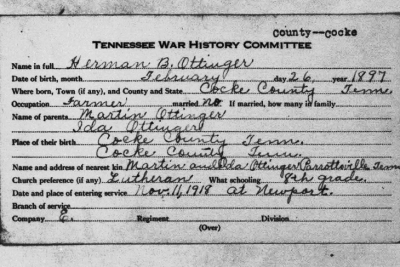 county--cocke
TENNESSEE WAR HISTORY COMMITTEE
Name in full Herman B. Ottinger
Date of birth, month February day 26, year 1897
Where born, Town (if any), and County and State Cocke County Tenn.
Occupation Farmer married No. If married, how many in family
Name of parents Martin Ottinger
Ida Ottinger
Place of their birth Cocke County Tenn.
Cocke County Tenn.
Name and address of nearest kin Martin and Ida Ottinger Parrottsville Tenn
Church preference (if any) Lutheran What schooling 8th grade.
Date and place of entering service Nov. 11, 1918 at Newport.
Branch of service
Company E. Regiment Division
(Over)